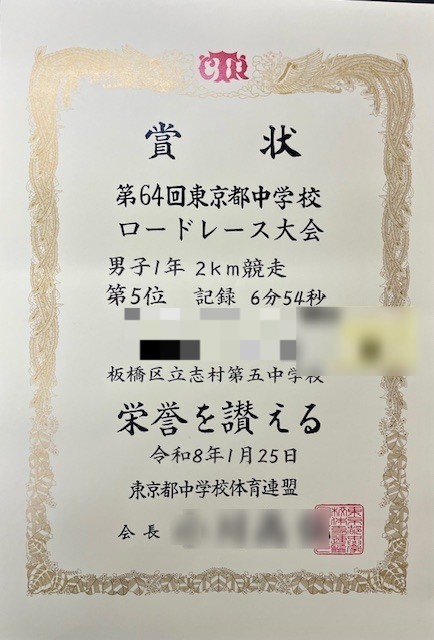 賞状
第64回東京都中学校
ロードレース大会
男子1年 2km競走
第5位 記録 6分54秒
板橋区立志村第五中学校
栄誉を讃える
令和8年1月25日
東京都中学校体育連盟
会長